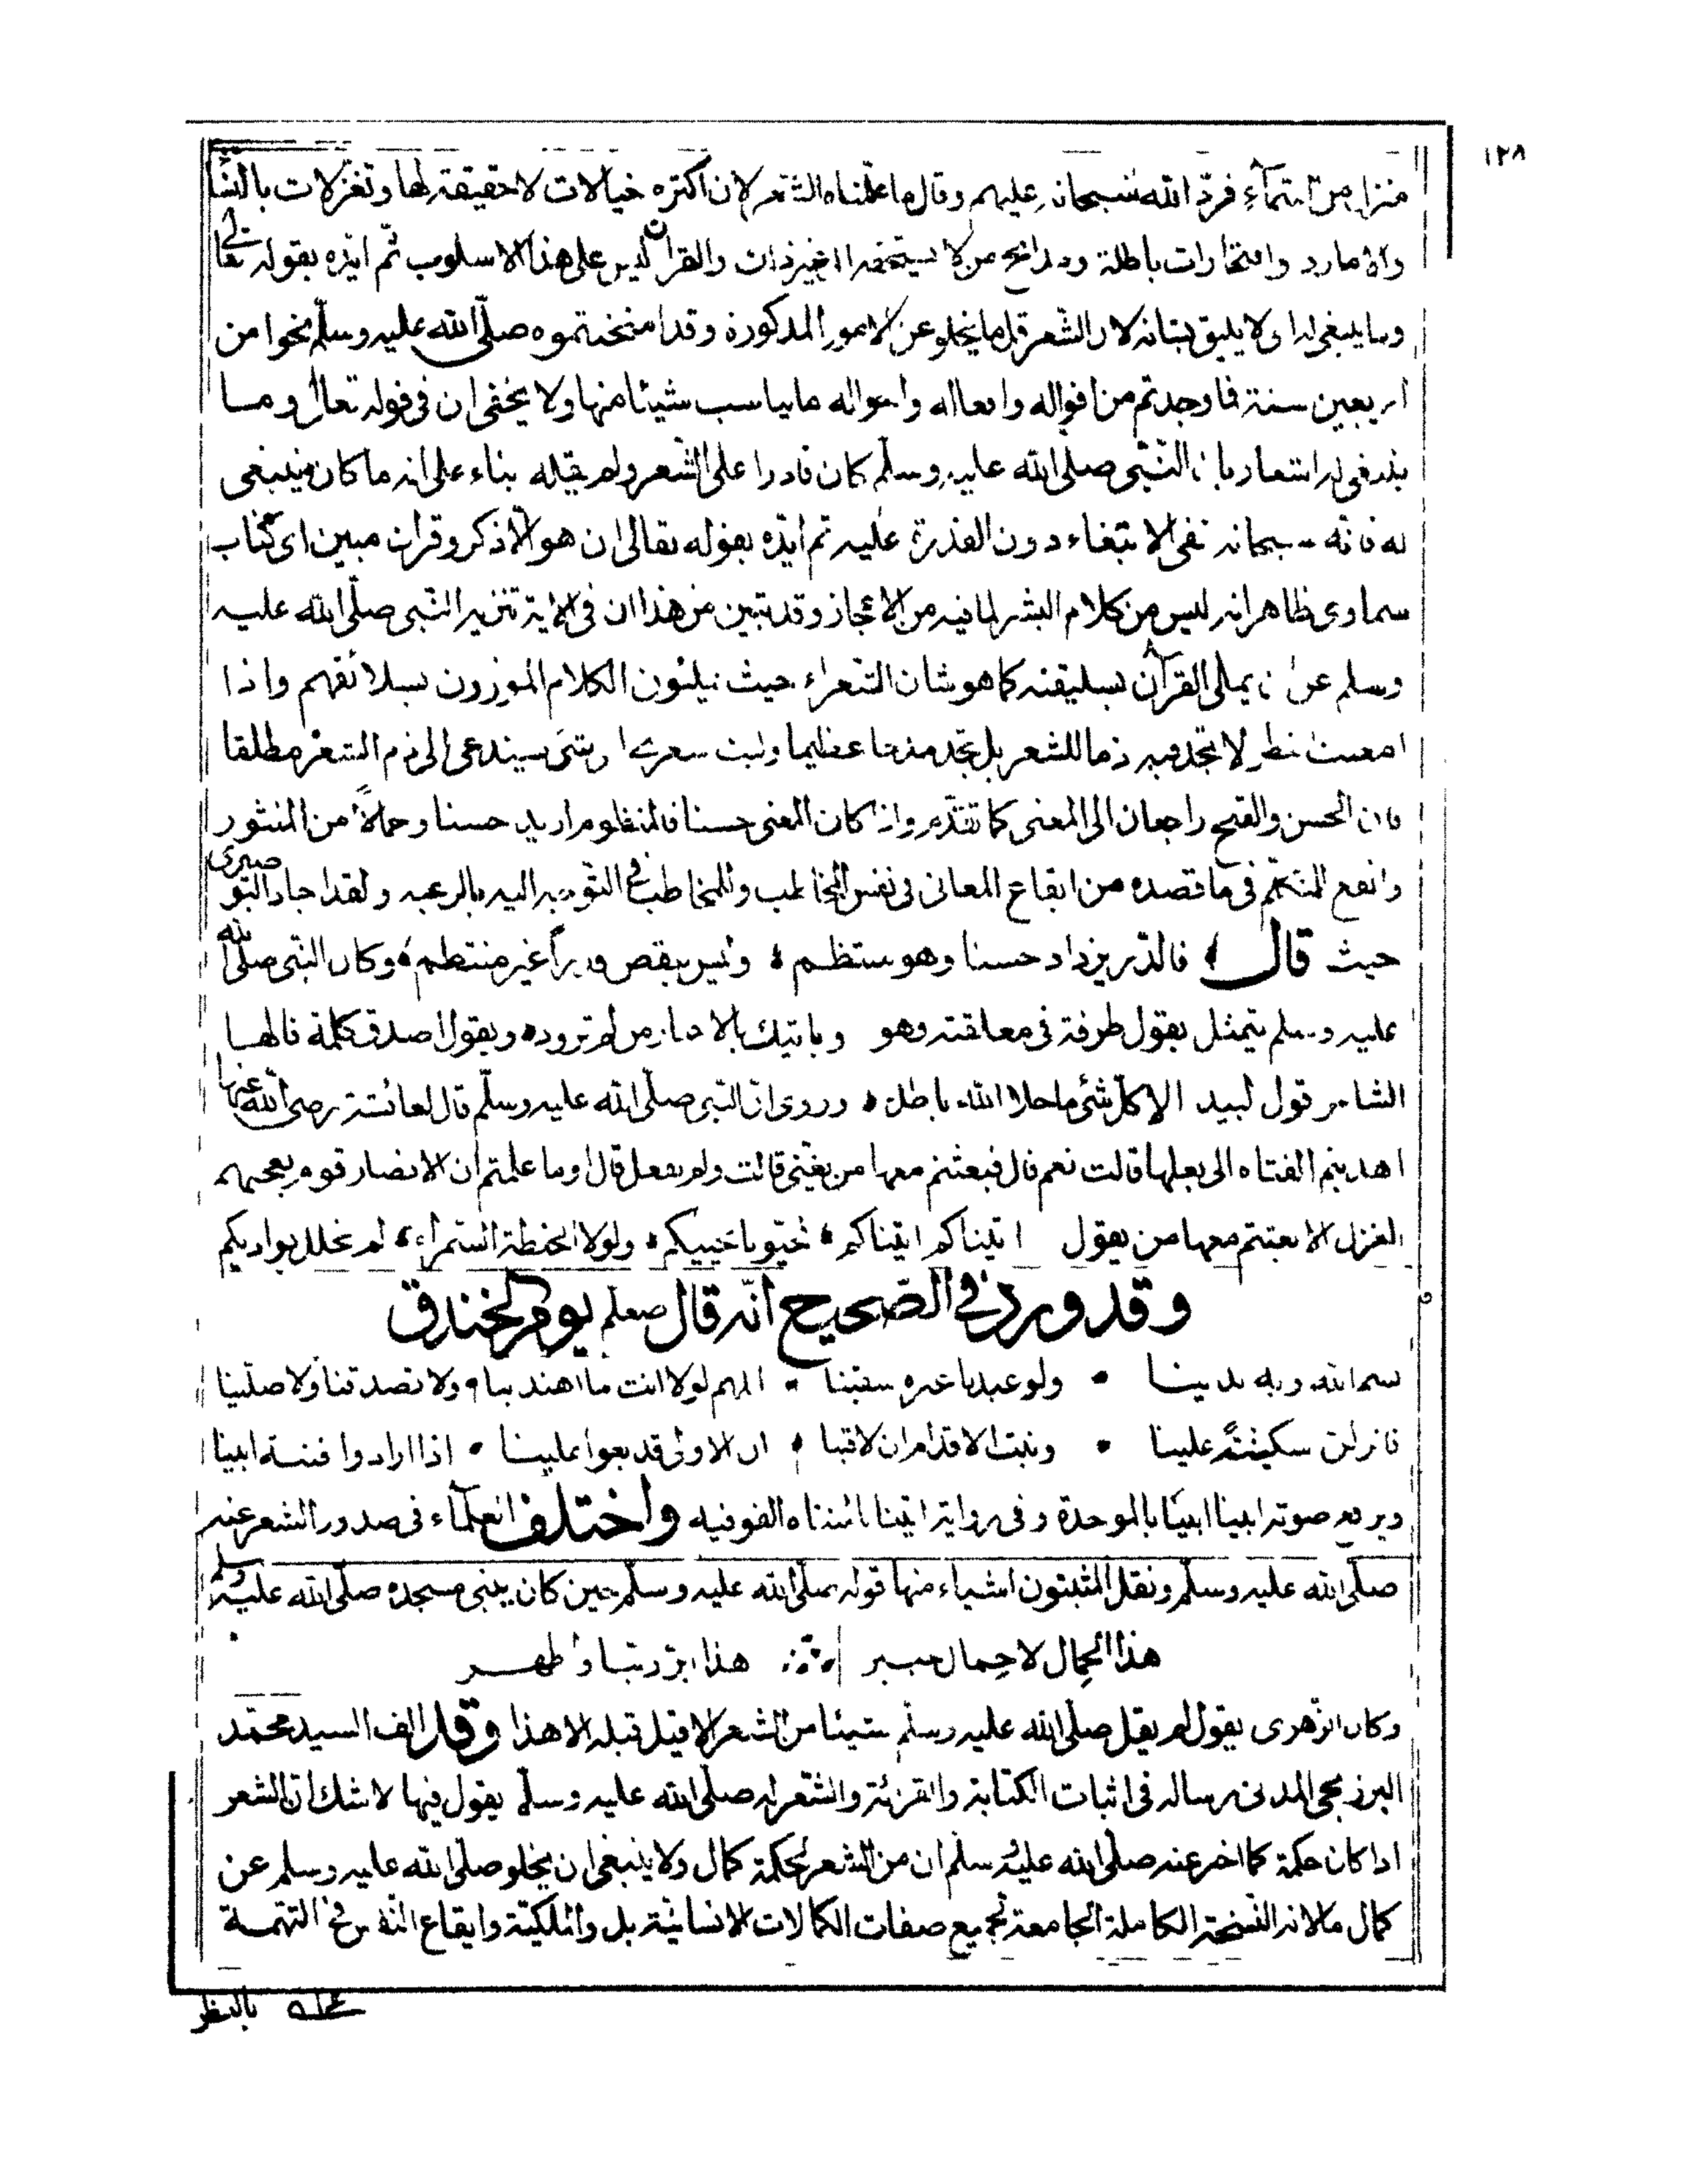 ١٢٨
منزل من السّمآء فردّ الله سبحانه عليهم وقال ما علّمناه الشّعر لان اكثره خيالات لا حقيقة لها وتغزلات بالنسا
والامارد وافتخارات باطلة ومدائح من لا يستحقها الى غير ذلك والقران ليس على هذا الاسلوب ثم ايّده بقوله تعالى
وما ينبغى له اى لا يليق بشانه لان الشّعر قل ما يخلو عن الامور المذكورة وقد امتحنتموه صلّى الله عليه وسلّم نحوا من
اربعين سنة فما وجدتم من اقواله وافعاله واحواله ما يناسب شيئا منها ولا يخفى ان فى قوله تعالى وما
ينبغى له اشعار بان النّبى صلى الله عليه وسلّم كان قادرا على الشّعر ولم يقله بناء على انه ما كان ينبغى
له فانه سبحانه نفى الابتغاء دون القدرة عليه ثم ايّده بقوله تعالى ان هو الّا ذكر وقران مبين اى كتاب
سماوى ظاهر انه ليس من كلام البشر لما فيه من الاعجاز وقد تبين من هذا ان فى الاية تنزيه النّبى صلّى الله عليه
وسلم عن ان يملى القرآن بسليقته كما هو شان الشعراء حيث يملئون الكلام الموزون بسلائقهم واذا
امعنت نظر لا تجد فيه ذما للشعر بل تجد مدحا عظيما وليت شعرى اى شئ يستدعى الى ذم الشعر مطلقا
فان الحسن والقبح راجعان الى المعنى كما تقدّم واذا كان المعنى حسنا فالمنظوم ازيد حسنا وحملاً من المنثور
وانفع للمتكلم فى ما قصده من ايقاع المعانى فى نفس المخاطب وللمخاطب فى التوجه اليه بالرغبه ولقد اجاد البوصيرى
حيث قال فالدّر يزداد حسنا وهو منتظم وليس ينقص قدراً غير منتظم وكان النّبى صلّى الله
عليه وسلم يتمثل بقول طرفة فى معلقته وهو وياتيك بالاخبار من لم تزود ويقول اصدق كلمة قالها
الشاعر قول لبيد الا كلّ شئ ما خلا الله باطل وروى انّ النّبى صلّى الله عليه وسلّم قال لعائشة رضى الله عنها
اهديتم الفتاه الى بعلها قالت نعم قال فبعثتم معها من يغنى قالت ولم نفعل قال اوما علمتم ان الانصار قوم يعجبهم
الغزل الا بعثتم معها من يقول اتيناكم اتيناكم فحيّونا نحييكم ولولا الحنطة السّمراء لم نحلل بواديكم
وقد ورد فى الصّحيح انّه قال صلعم يوم الخندق
بسم الله وبه بدينا ولو عبدنا غيره شقينا اللهم لولا انت ما اهتدينا ولا تصدقنا ولا صلّينا
فانزلن سكينة علينا وثبت الاقدام ان لاقينا ان الاولى قد بغوا علينا اذا ارادوا فتنة ابينا
ويرفع صوته ابينا ابينا بالموحدة وفى رواية اتينا بالمثناه الفوقيه واختلف العلماء فى صدور الشعر عنه
صلّى الله عليه وسلّم ونقل المثبتون اشياء منها قوله صلّى الله عليه وسلّم حين كان يبنى مسجده صلّى الله عليه وسلم
هذا الحمال لا حمال خيبر هذا ابرّ ربنا واطهر
وكان الزّهرى يقول لم يقل صلّى الله عليه وسلم شيئا من الشعر الا قيل قبله الا هذا وقد الف السيد محمّد
البرزنجى المدنى رساله فى اثبات الكتابة والقرائة والشّعر له صلّى الله عليه وسلّم يقول فيها لا شك ان الشعر
اذا كان حكمة كما اخبر عنه صلّى الله عليه وسلم ان من الشعر لحكمة كمال ولا ينبغى ان يخلو صلّى الله عليه وسلم عن
كمال ما لانه النّسخة الكاملة الجامعة لجميع صفات الكمالات الانسانيّة بل والملكيّة وايقاع النفس فى التهمة
بالنظر